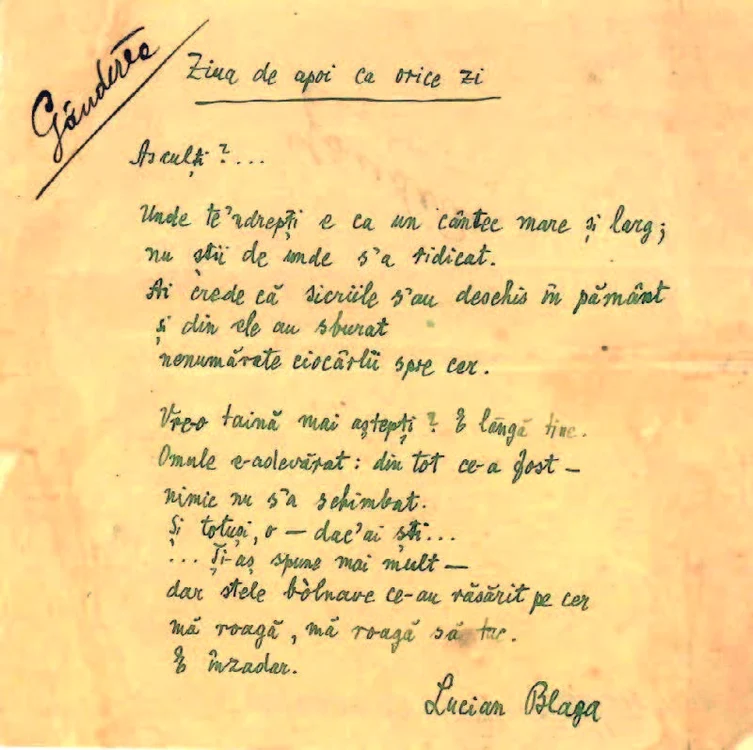 Gândirea
Ziua de apoi ca orice zi
Asculți?...
Unde te'ndrepți e ca un cântec mare și larg;
nu știi de unde s'a ridicat.
Ai crede că sicriile s'au deschis în pământ
și din ele au sburat
nenumărate ciocârlii spre cer.
Vre-o taină mai aștepți? E lângă tine.
Omule e-adevărat: din tot ce-a fost —
nimic nu s'a schimbat.
Și totuși, o — dac'ai ști...
... Ți-aș spune mai mult —
dar stele bòlnave ce-au răsărit pe cer
mă roagă, mă roagă să tac.
E înzadar.
Lucian Blaga